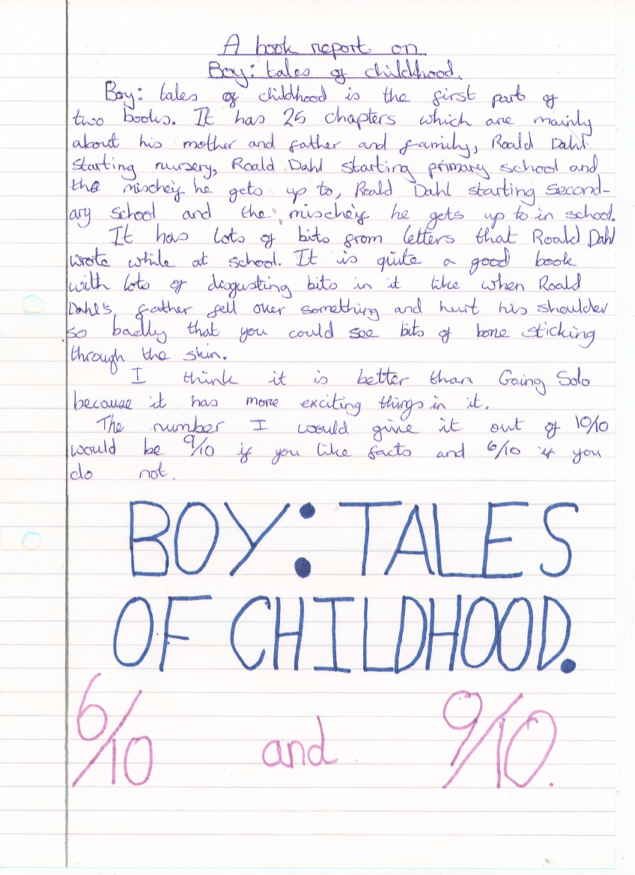 A book report on
Boy: tales of childhood.
Boy: tales of childhood is the first part of
two books. It has 25 chapters which are mainly
about his mother and father and family, Roald Dahl
starting nursery, Roald Dahl starting primary school and
the mischeif he gets up to, Roald Dahl starting second-
ary school and the mischeif he gets up to in school.
It has lots of bits from letters that Roald Dahl
wrote while at school. It is quite a good book
with lots of disgusting bits in it like when Roald
Dahl's father fell over something and hurt his shoulder
so badly that you could see bits of bone sticking
through the skin.
I think it is better than Going Solo
because it has more exciting things in it.
The number I would give it out of 10/10
would be 9/10 if you like facts and 6/10 if you
do not.
BOY: TALES
OF CHILDHOOD.
6/10 and 9/10.